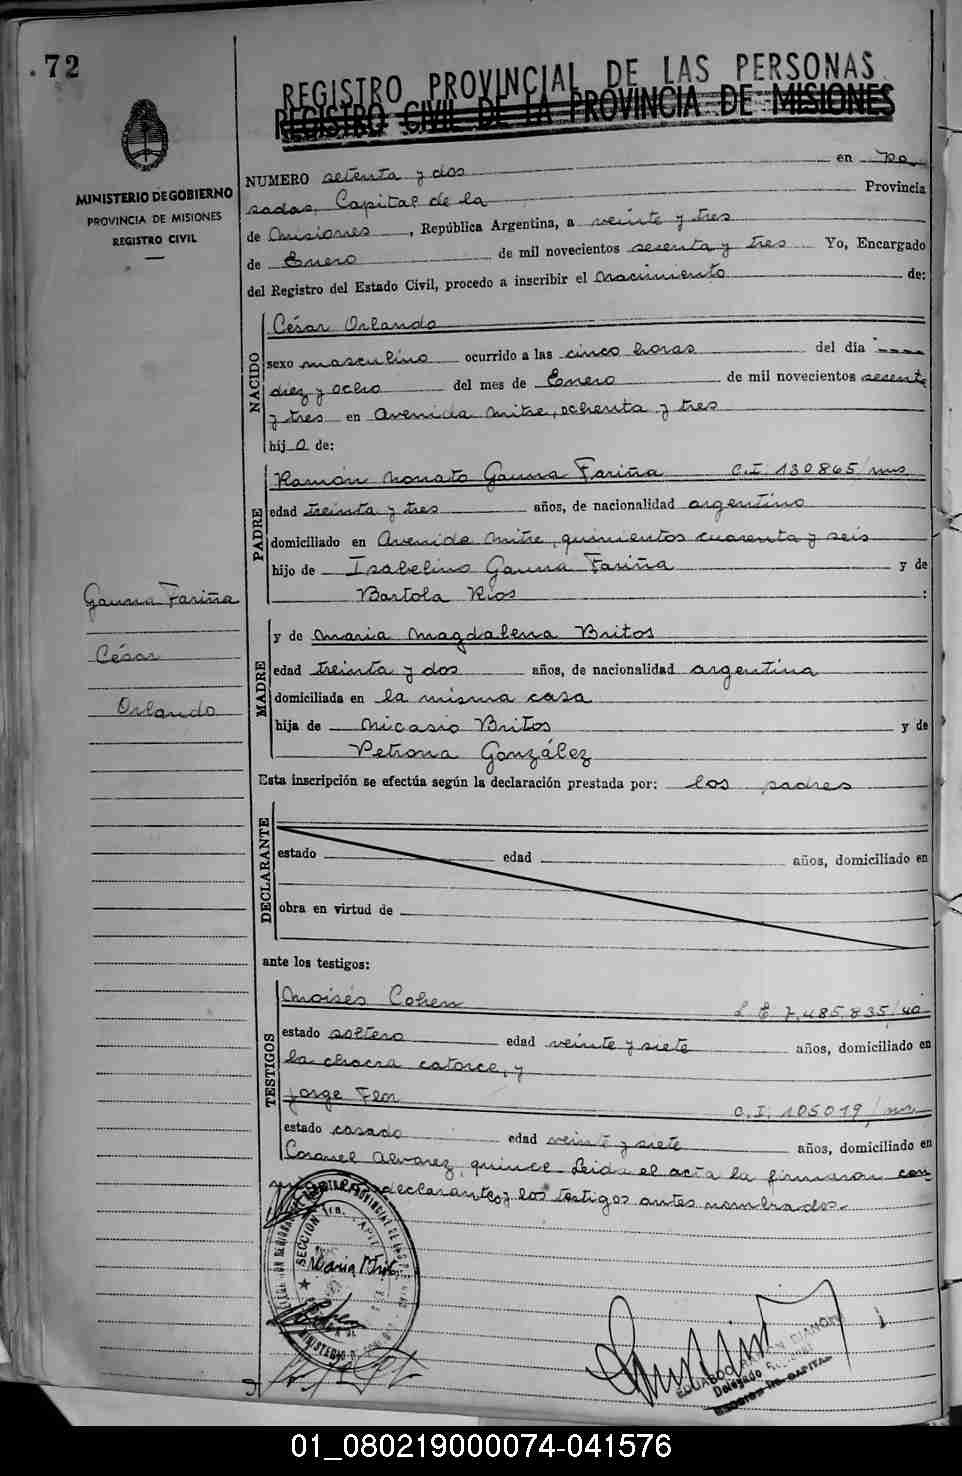 72
REGISTRO PROVINCIAL DE LAS PERSONAS
REGISTRO CIVIL DE LA PROVINCIA DE MISIONES
MINISTERIO DE GOBIERNO
PROVINCIA DE MISIONES
REGISTRO CIVIL
NUMERO setenta y dos en Po
sadas, Capital de la Provincia
de Misiones, República Argentina, a veinte y tres
de Enero de mil novecientos sesenta y tres Yo, Encargado
del Registro del Estado Civil, procedo a inscribir el Nacimiento de:
NACIDO
César Orlando
sexo masculino ocurrido a las cinco horas del día
diez y ocho del mes de Enero de mil novecientos sesenta
y tres en Avenida Mitre, ochenta y tres
hijo de:
PADRE
Ramón Nonato Gauna Fariña C.I. 130865/ms
edad treinta y tres años, de nacionalidad argentino
domiciliado en Avenida Mitre, quinientos cuarenta y seis
hijo de Isabelino Gauna Fariña y de
Bartola Ríos :
Gauna Fariña
César
Orlando
MADRE
y de Maria Magdalena Britos
edad treinta y dos años, de nacionalidad argentina
domiciliada en la misma casa
hija de Nicasio Britos y de
Petrona González
Esta inscripción se efectúa según la declaración prestada por: los padres
DECLARANTE
estado edad años, domiciliado en
obra en virtud de
ante los testigos:
TESTIGOS
Moisés Cohen L.E. 7.485.835/
estado soltero edad veinte y siete años, domiciliado en
la chacra catorce, y
Jorge Flor C.I. 105019/ms
estado casado edad veinte y siete años, domiciliado en
Coronel Alvarez, quince. Leida el acta la firmaron con
declarantes y los testigos antes nombrados.
SECCION 1ra.
Maria
MINISTERIO
Delegado
SECCION 1ra. CAPITAL
01_080219000074-041576